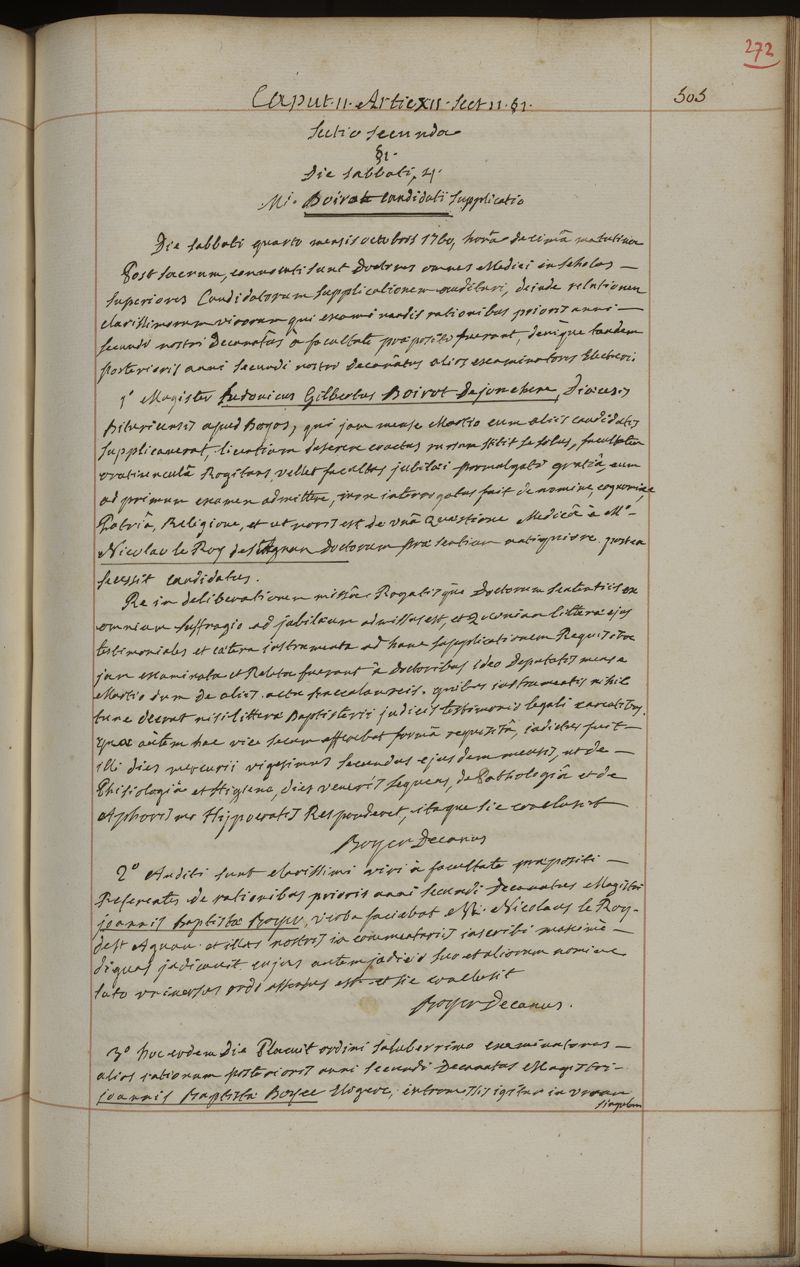 272
Caput. 11. Artic XII. Sect 11. §1.
505
Sectio secunda
§1.
Die sabbati, 4.
Mi. Boirot candidati supplicatio
Die sabbati quarto mensis octobris 1760, horâ decimâ matutina
Post sacrum, convocati sunt Doctores omnes Medici in scholas —
superiores Candidatorum supplicationem audituri, deinde relationem
clarissimorum virorum qui examinandis rationibus prioris anni —
secundi nostri decanatûs à facultate præpositi fuerant, denique tandem
posterioris anni secundi nostri decanatus alios examinatores Electuri.
1° Magister Ludovicus Gilbertus Boirot Dejonchere, Diœcesis
Bituricensis apud Boyos, qui jam mense Martio cum aliis candidatis
supplicaverat, licentiam deserere coactus rursum stitit se solus, facultatem
oratiuncula Rogitans, vellet facultas jubilæi promulgati gratiâ, eum
ad primum examen admittere, mox interrogatus fuit de nomine, cognomine,
Patriâ, Religione, et ut moris est de unâ Quæstione Medicâ à M°-
Nicolao le Roy de St Agnan doctorum præsentium antiquiore. postea
secessit candidatus.
Re in deliberationem missâ. Rogatisque Doctorum sententiis ex
omnium suffragio ad jubilæum admissus est, et Quoniam litteræ ejus
testimoniales et cætera instrumenta ad hanc supplicationem Requisita
jam examinata et Relata fuerant à doctoribus ideo deputatis mense
Martio dum de aliis actu Baccalaureis. quibus instrumentis nihil
tunc deerat nisi litteræ Baptisterii judicis testimonio legali
quas autem hac vice secum afferebat formâ requisitâ, indictus fuit —
illi dies mercurii vigesimus secundus ejusdem mensis, ut de —
Phisiologiâ et Higiena, dies veneris sequens, de Pathologiâ et de
Aphorismis Hippocratis Responderet, itaque sic conclusit
Boyer Decanus
2° Auditi sunt clarissimi viri à facultate præpositi —
Referentes de rationibus prioris anni secundi Decanatus Magistri
joannis Baptistæ Boyer, verba faciebat M. Nicolaus le Roy-
de St Agnan. et illas nostris in commentariis inscribi maxime —
dignas judicavit cujus autem judicio suo et aliorum nomine
lato universus ordo assensus est et sic conclusit
Boyer Decanus.
3° hoc eodem die Placuit ordini saluberrimo examinatores —
alios rationum posterioris anni secundi Decanatus Magistri-
joannis Baptistæ Boyer Eligere, intromissis igitur in urnam
singulorum